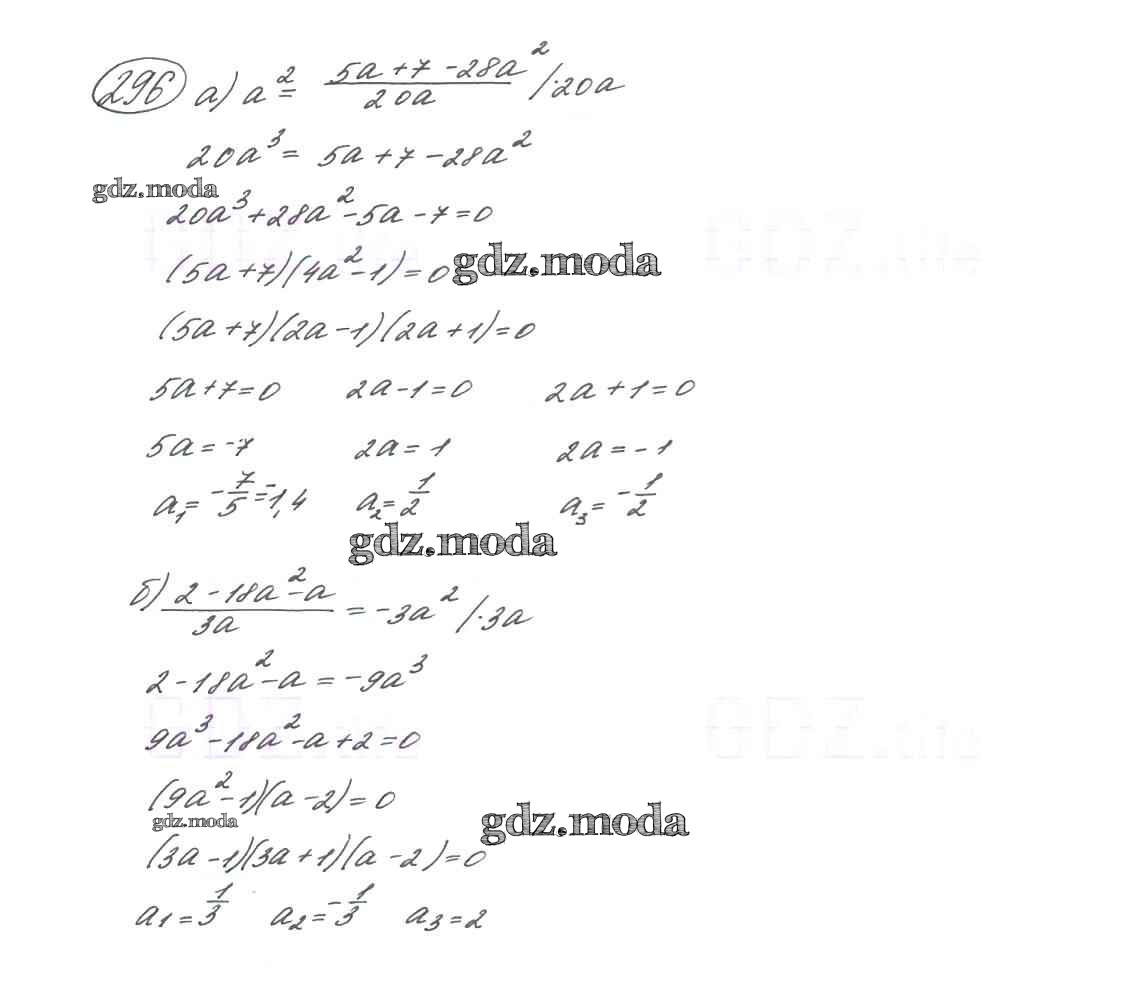 296 а) a² = (5a + 7 - 28a²)/(20a) /·20a
20a³ = 5a + 7 - 28a²
gdz.moda
20a³ + 28a² - 5a - 7 = 0
GDZ.me GDZ.me
(5a + 7)(4a² - 1) = 0 gdz.moda
(5a + 7)(2a - 1)(2a + 1) = 0
5a + 7 = 0 2a - 1 = 0 2a + 1 = 0
5a = -7 2a = 1 2a = -1
a₁ = -7/5 = -1,4 a₂ = 1/2 a₃ = -1/2
gdz.moda
б) (2 - 18a² - a)/(3a) = -3a² /·3a
2 - 18a² - a = -9a³
GDZ.me GDZ.me
9a³ - 18a² - a + 2 = 0
(9a² - 1)(a - 2) = 0
gdz.moda gdz.moda
(3a - 1)(3a + 1)(a - 2) = 0
a1 = 1/3 a2 = -1/3 a3 = 2